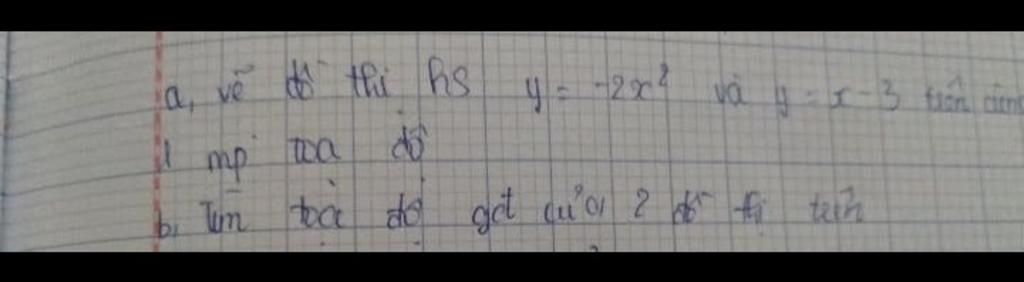 a, vẽ đồ thị hs y = -2x² và y = x - 3 trên cùng
1 mp toạ độ
b, Tìm toạ độ gđ của 2 đồ thị trên